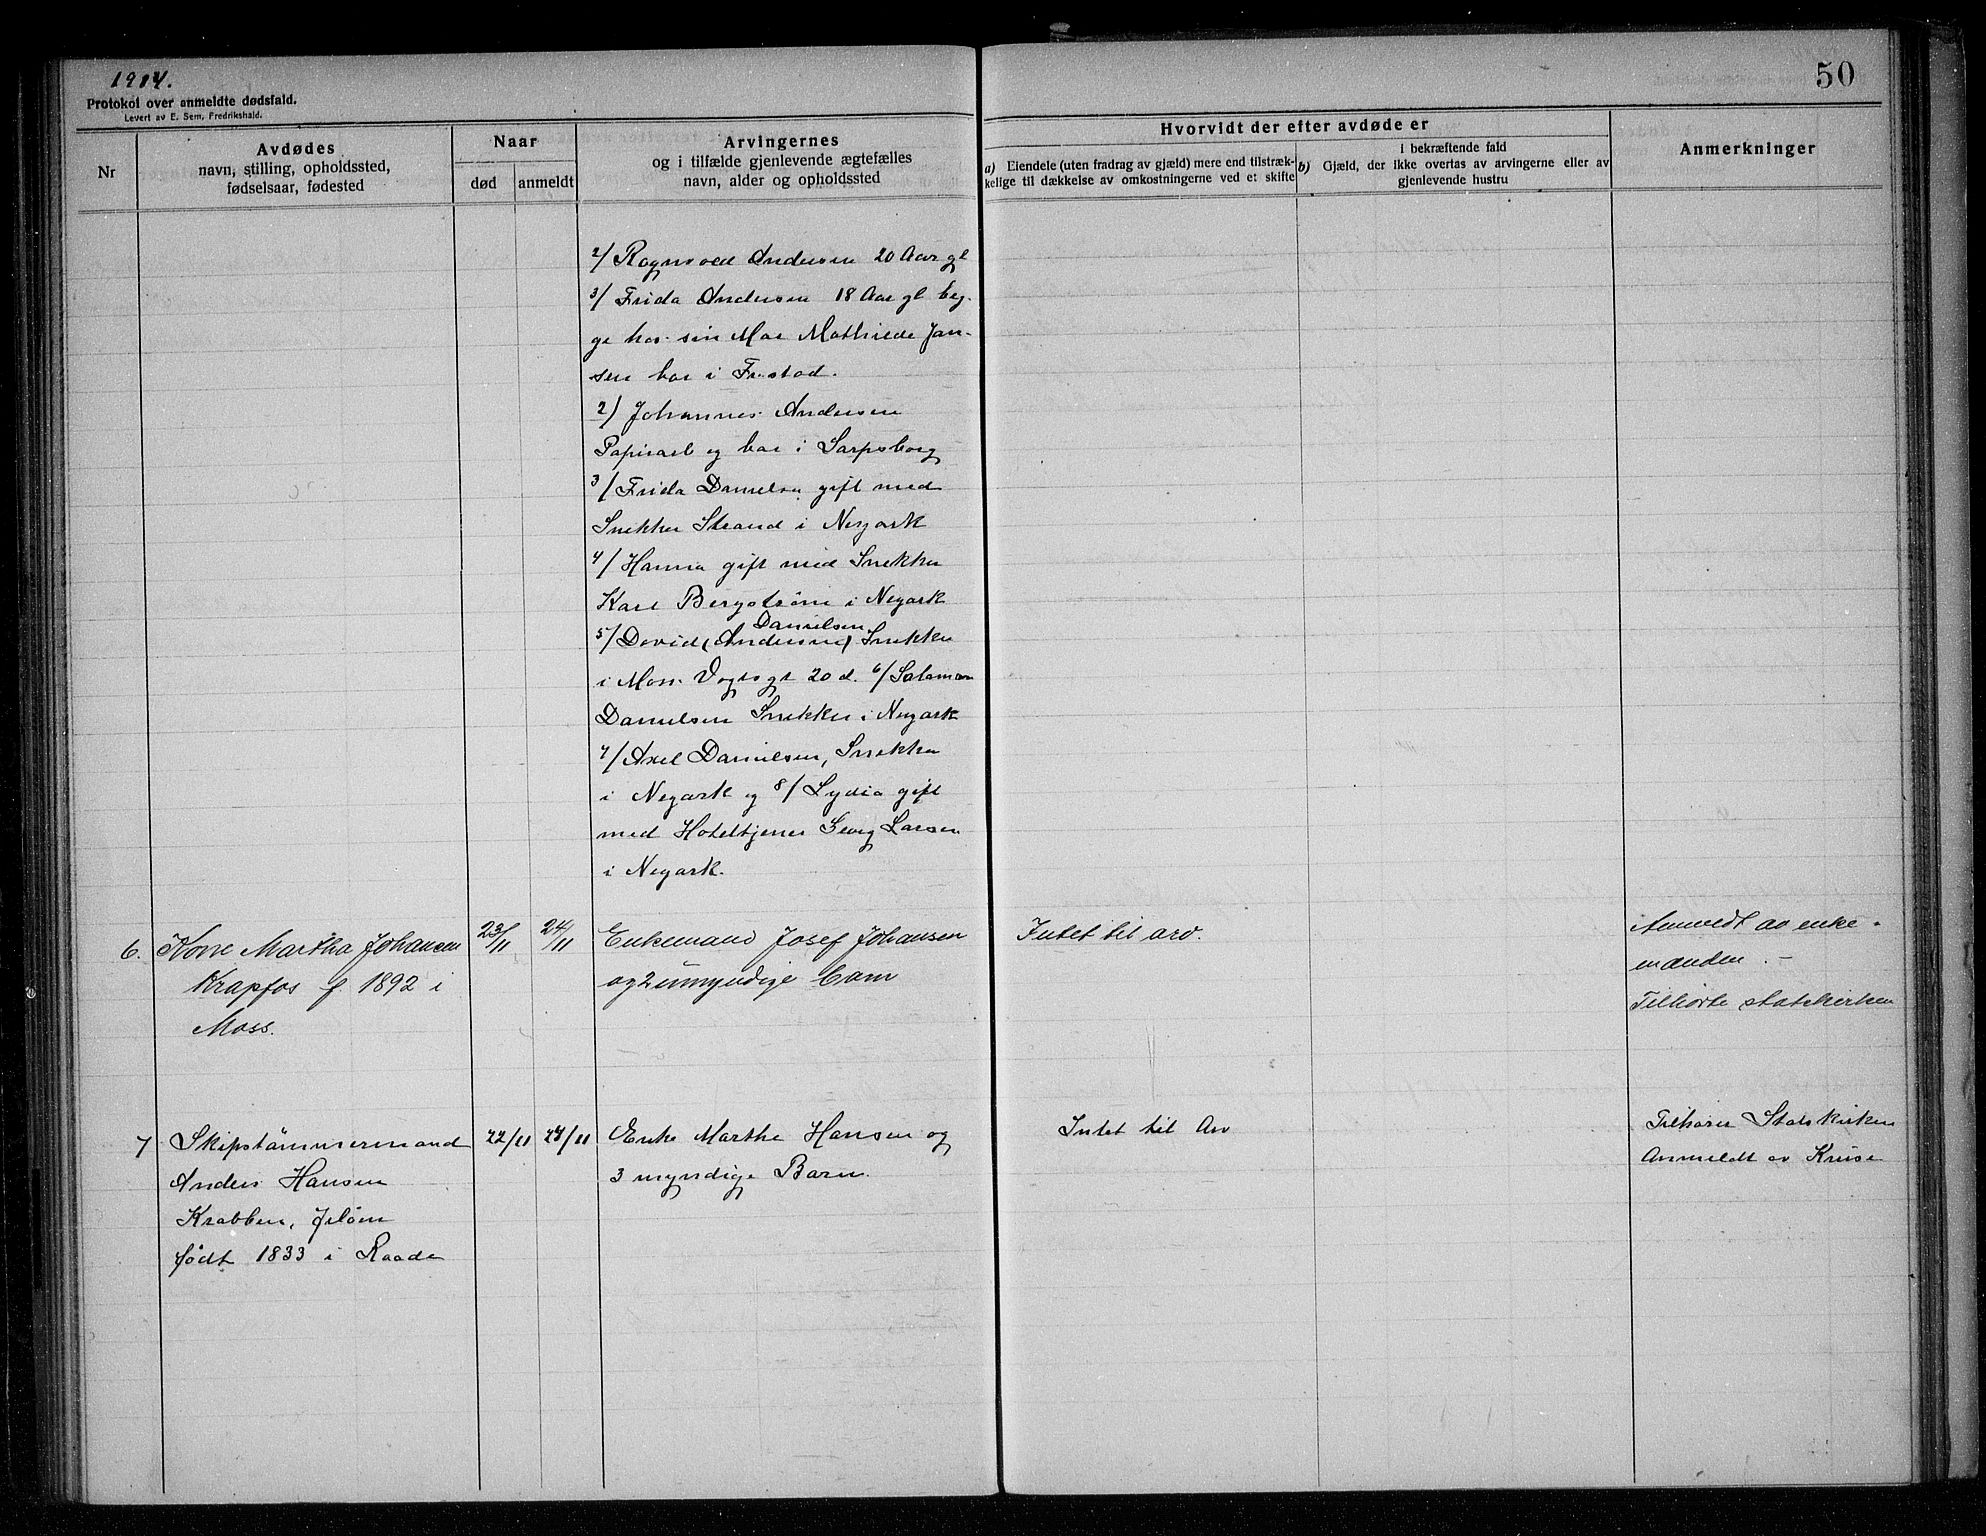 1914.
50
Protokol over anmeldte dødsfald.
Levert av E. Sem, Fredrikshald.
Nr
Avdødes
navn, stilling, opholdssted,
fødselsaar, fødested
Naar
død
anmeldt
Arvingernes
og i tilfælde gjenlevende ægtefælles
navn, alder og opholdssted
Hvorvidt der efter avdøde er
a) Eiendele (uten fradrag av gjæld) mere end tilstræk-
kelige til dækkelse av omkostningerne ved et skifte
I bekræftende fald
b) Gjæld, der ikke overtas av arvingerne eller av
gjenlevende hustru
Anmerkninger
2/ Ragnvald Andersen 20 Aar gl
3/ Frida Andersen 18 Aar gl beg-
ge hos sin Mor Mathilde Jan-
sen bor i Fr.stad.
2) Johannes Andersen
Papirarb og bor i Sarpsborg
3/ Frida Danielsen gift med
Snekker Strand i Neyark
4/ Hanna gift med Snekker
Karl Bergstrøm i Neyark
Danielsen
5/ David (Andersen) Snekker
i Moss Vogtsgt 20 d. 6/ Salamon
Danielsen Snekker i Neyark
7/ Axel Danielsen, Snekker
i Neyark og 8/ Lydia gift
med Hoteltjener Georg Larsen
i Neyark.
6. Kone Martha Johansen 23/11 24/11 Enkemand Josef Johansen Intet til arv. Anmeldt av enke-
Krapfos f. 1892 i og 2 umyndige barn manden. -
Moss. Tilhørte statskirken
7 Skipstømmermand 22/11 24/11 Enke Marthe Hansen og Intet til Arv Tilhører Statskirken
Anders Hansen 3 myndige Barn. Anmeldt av Kruse
Krabben, Jeløen
født 1833 i Raade